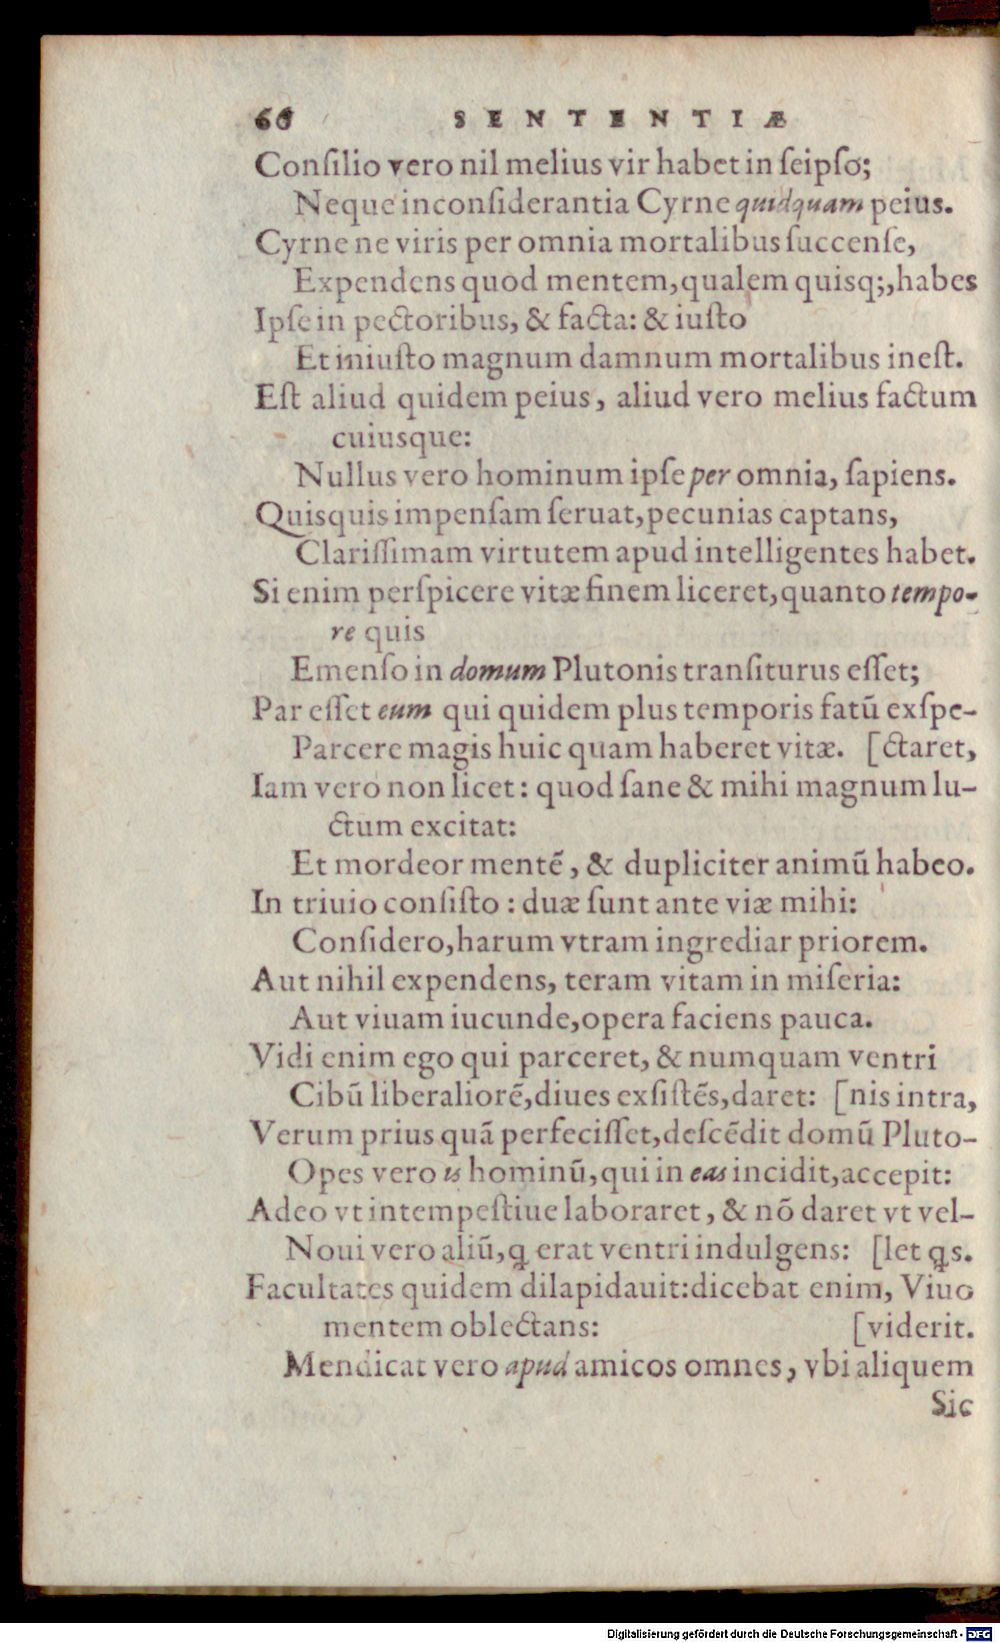 66 SENTENTIÆ
Conſilio vero nil melius vir habet in ſeipſo;
Neque inconſiderantia Cyrne quidquam peius.
Cyrne ne viris per omnia mortalibus ſuccenſe,
Expendens quod mentem, qualem quisq;, habes
Ipſe in pectoribus, & facta: & iuſto
Et iniuſto magnum damnum mortalibus ineſt.
Eſt aliud quidem peius, aliud vero melius factum
cuiusque:
Nullus vero hominum ipſe per omnia, ſapiens.
Quisquis impenſam ſeruat, pecunias captans,
Clariſſimam virtutem apud intelligentes habet.
Si enim perſpicere vitæ finem liceret, quanto tempo-
re quis
Emenſo in domum Plutonis tranſiturus eſſet;
Par eſſet eum qui quidem plus temporis fatū exſpe-
Parcere magis huic quam haberet vitæ. [ctaret,
Iam vero non licet: quod ſane & mihi magnum lu-
ctum excitat:
Et mordeor mentē, & dupliciter animū habeo.
In triuio conſiſto: duæ ſunt ante viæ mihi:
Conſidero, harum vtram ingrediar priorem.
Aut nihil expendens, teram vitam in miſeria:
Aut viuam iucunde, opera faciens pauca.
Vidi enim ego qui parceret, & numquam ventri
Cibū liberaliorē, diues exſiſtēs, daret: [nis intra,
Verum prius quā perfeciſſet, deſcēdit domū Pluto-
Opes vero is hominū, qui in eas incidit, accepit:
Adeo vt intempeſtiue laboraret, & nō daret vt vel-
Noui vero aliū, ꝗ erat ventri indulgens: [let ꝗs.
Facultates quidem dilapidauit: dicebat enim, Viuo
mentem oblectans: [viderit.
Mendicat vero apud amicos omnes, vbi aliquem
Sic
Digitalisierung gefördert durch die Deutsche Forschungsgemeinschaft - DFG